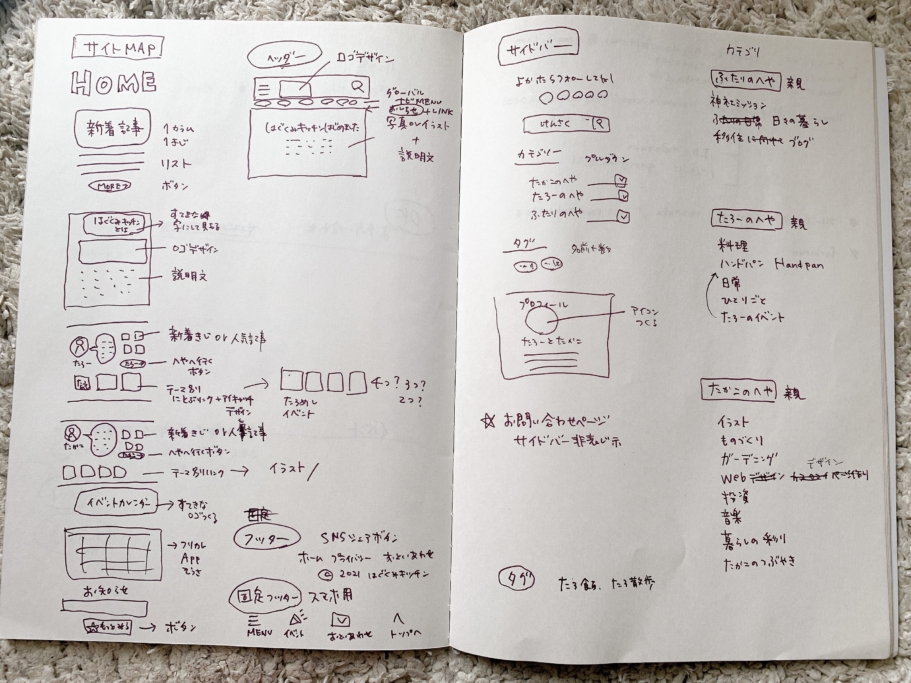 サイトMAP
HOME
新着記事
1カラム
リスト
MORE>
ボタン
はぐくみキッチン
とは
ロゴデザイン
説明文
たろー
新着きじ or 人気記事
へやへ行く
ボタン
テーマ別り
にとぶリンク+アイキャッチ
デザイン
たろめし
イベント
4つ? 3つ?
2つ?
たかこ
新着きじ or 人気記事
へやへ行くボタン
テーマ別リンク
イラスト/
イベントカレンダー
すてきな
ロゴつくる
フリカレ
App
お知らせ
もっとみる
ボタン
ヘッダー
ロゴデザイン
グローバル
ナビMENU
+LINK
はぐくみキッチンはじめました
写真orイラスト
+
説明文
フッター
SNSシェアボタン
ホーム プライバシー おといあわせ
© 2021 はぐくみキッチン
固定フッター スマホ用
MENU
イベント
おといあわせ
トップへ
サイドバー
よかったらフォローしてね!
けんさく
カテゴリー プルダウン
たかこのへや
たろーのへや
ふたりのへや
タグ
プロフィール
たろーとたかこ
アイコン
つくる
☆ お問い合わせページ
サイドバー非表示
タグ
たろ飯、たろ散歩
カテゴリ
ふたりのへや 親
神社ミッション
日々の暮らし
ブログ
たろーのへや 親
料理
ハンドパン Handpan
日常
ひとりごと
たろーのイベント
たかこのへや 親
イラスト
ものづくり
ガーデニング
デザイン
Web デザイン
投資
音楽
暮らしの彩り
たかこのつぶやき